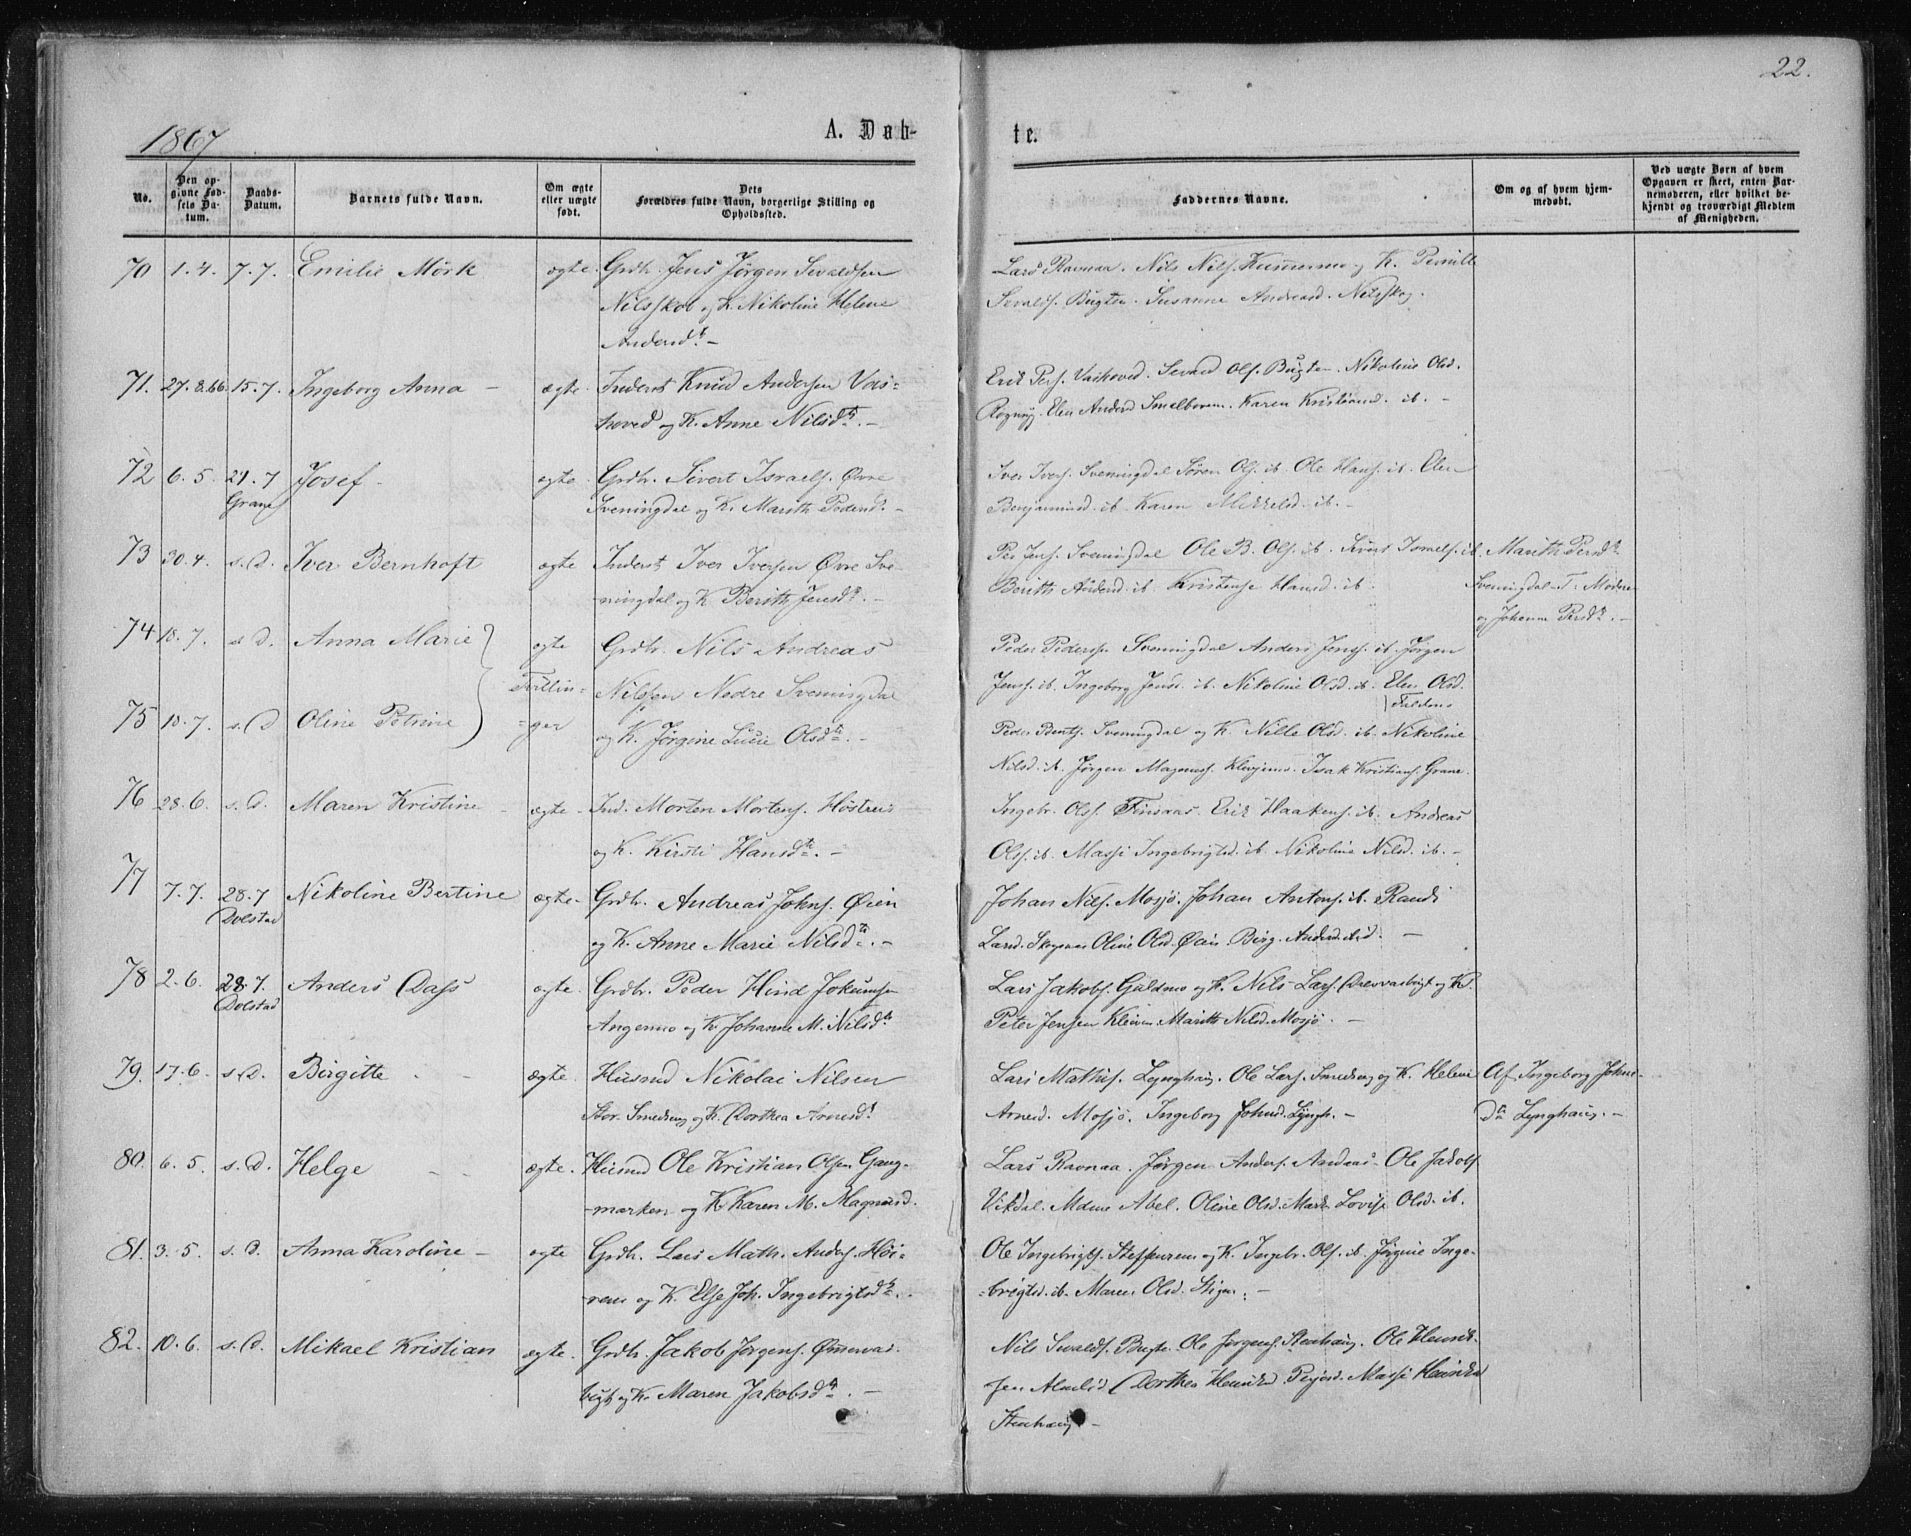 22.
1867
A. Døb-
te.
No.
Den op-
givne Fød-
sels Da-
tum.
Daabs-
Datum.
Barnets fulde Navn.
Om ægte
eller uægte
født.
Dets
Forældres fulde Navn, borgerlige Stilling og
Opholdssted.
Faddernes Navne.
Om og af hvem hjem-
medøbt.
Ved uægte Børn af hvem
Opgaven er skeet, enten Bar-
nemoderen, eller hvilket be-
kjendt og troværdigt Medlem
af Menigheden.
70 1.4. 7.7. Emilie Mörk ægte. Grdbr. Jens Jørgen Sivaldsen
Nilsskob og K. Nikoline Helene
Andersdtr. –
Lars Ravnaa. Nils Nils. og K. Pernille
Sevalds. Bugten. Susanne Andreasd. Nilsskog.
71. 27.8.66. 15.7. Ingeborg Anna – ægte. Inderst Knud Andersen Vas-
hoved og K. Anne Nilsdtr. –
Erik Pers. Vashoved. Sevard Ols. Bugten. Nikoline Olsd.
Elen Andersd. Karen Kristiansd. ib. –
72 6.5. 21.7 Josef – ægte Grdbr. Sivert Israels. Øvre
Grane
Sveningdal og K. Marith Pedersd. –
Iver Ivers. Sveningdal Søren Ols. ib. Ole Hans. ib. Elen
Benjaminsd. ib. Karen Mikkelsd. ib. –
73 30.4. s.D. Iver Bernhoft ægte Inderst Iver Iversen Øvre Sve-
ningdal og K. Berith Jensdtr. –
Per Jens. Sveningdal Ole B. Ols. ib. Sivert Israels. ib.
Berith Andersd. ib Kristense Hansd. ib
Marith Persdtr
Sveningdal
og Johanna Persdtr. –
74 18.7. s D. Anna Marie ægte Grdbr. Nils Andreas
Tvillin- Nilssen Nedre Sveningdal
75 18.7. s.D Oline Petrine -ger og K. Jørgine Lucie Olsdtr. –
Peder Peders. Sveningdal Anders Jens. ib. Jørgen
Jens. ib. Ingeborg Jensd. ib. Nikoline Olsd. ib. Elen Olsd.
Peder Bents. Sveningdal og K. Nille Olsd. ib. Nikoline
Nilsd. ib. Jørgen Magnus. Isak Kristians. Grane.
76 28.6. s.D. Maren Kristine – ægte. Ind. Morten Mortens.
og K. Kirsti Hansdtr. –
Ingebr. Ols. Finsaas. Erik Haakens. ib. Andreas
Ols. ib. Masji Ingebrigtsd. ib. Nikoline Nilsd. ib. –
77 7.7. 28.7 Nikoline Bertine ægte. Grdbr. Andreas Johns. Øien
Dolstad
og K. Anne Marie Nilsdtr. –
Johan Nils. Mosjø. Johan Antons. ib. Randi
Larsd. Oline Olsd. Øien. Andersd. –
78 2.6. 28.7. Anders Dass ægte. Grdbr. Peder Hind Jokumsen
Dolstad
Angermo og K. Johanne M. Nilsdtr.
Lars Jakobs. og K. Nils Lars. Drevvasbrigt og K.
Peter Jensen Kleiven. Marith Nilsd. Mosjø. –
79. 17.6. s.D. Birgitte – ægte. Husmd Nikolai Nilsen
Stor. Smedseng og K. Dorthea Arnesdt.
Lars Mathis. Lynghaug. Ole Lars. Smedseng og K. Helene
Arnesd. Mosjø. Ingeborg Johnsd. Lyngh. –
Af Ingeborg Johns-
dtr Lynghaug. –
80. 6.5. s.D. Helge – ægte. Husmd Ole Kristian Olsen Gang-
marken og K. Karen M. Magnusd.
Lars Ravnaa. Jørgen Anders. Andaas. Ole Jakobs.
Vikdal. Mdme Abel. Oline Olsd. Mark Lovise Olsd. ib.
81. 3.5. s.D. Anna Karoline – ægte Grdbr. Lars Math. Anders. Høi-
renes og K. Else Joh. Ingebrigtsdtr. –
Ole Ingebrigts. Steffenrem og K. Ingebr. Ols. ib. Jørgine Inge-
brigtsd. ib. Maren Olsd. Stigen. –
82. 10.6. s.D. Mikael Kristian ægte. Grdbr. Jakob Jørgens.
bugt og K. Maren Jakobsdtr. –
Nils Sevalds. Bugte. Ole Jørgens. Stenhaug. Ole Henrik-
sen Almlid Dorthea Henriksd. Masji Henriksd
Stenhaug –